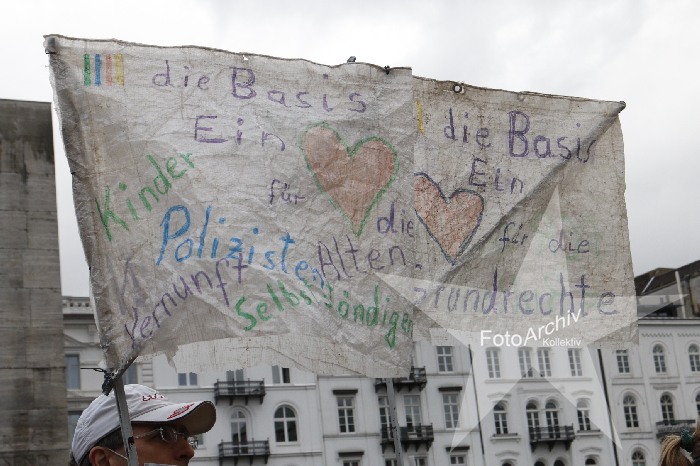 die Basis
Ein
für die
Kinder
Polizisten
Alten
Vernunft
Selbstständigen
die Basis
Ein
für die
Grundrechte
FotoArchiv
Kollektiv